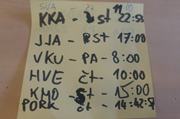 KKA - St 22:58
JJA - St 17:00
VKU - PA - 8:00
HVE čt - 10:00
KMO - St - 15:00
PORK - čt - 14:42:57